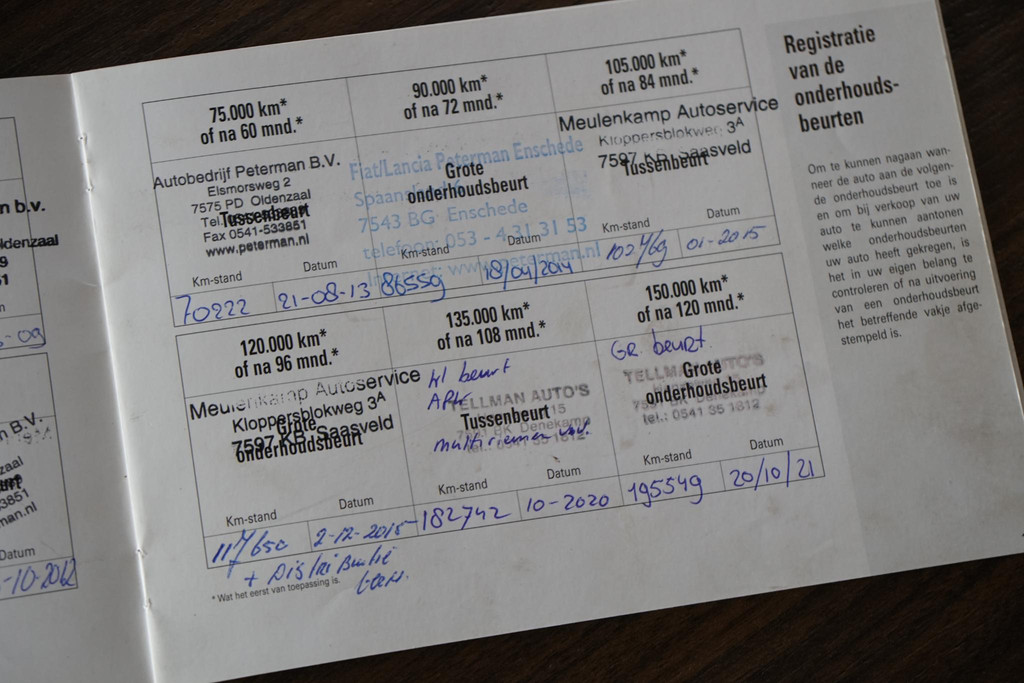 n b.v.
ldenzaal
-09
n B.V.
zaal
3851
man.nl
Datum
-10-2012
75.000 km*
of na 60 mnd.*
Autobedrijf Peterman B.V.
Elsmorsweg 2
7575 PD Oldenzaal
Tussenbeurt
Fax 0541-533851
www.peterman.nl
Km-stand Datum
70222 21-08-13
90.000 km*
of na 72 mnd.*
Fiat/Lancia Peterman Enschede
Grote
onderhoudsbeurt
7543 BG Enschede
telefoon: 053 - 4 31 31 53
Internet: www.peterman.nl
Km-stand Datum
86559 18/04/2014
105.000 km*
of na 84 mnd.*
Meulenkamp Autoservice
Kloppersblokweg 3A
7597 KB Saasveld
Tussenbeurt
Km-stand Datum
102769 01-2015
120.000 km*
of na 96 mnd.*
Meulenkamp Autoservice
Kloppersblokweg 3A
Grote
7597 KB Saasveld
onderhoudsbeurt
Km-stand Datum
117650 2-12-2015
+ Distributie
135.000 km*
of na 108 mnd.*
kl beurt
APK
TELLMAN AUTO'S
15
Tussenbeurt
7591 BK Denekamp
multiriemen
tel.: 0541 35 1812
Km-stand Datum
182742 10-2020
150.000 km*
of na 120 mnd.*
GR. beurt.
TELLMAN AUTO'S
Grote
onderhoudsbeurt
7591 BK Denekamp
tel.: 0541 35 1812
Km-stand Datum
195549 20/10/21
* Wat het eerst van toepassing is.
Registratie
van de
onderhouds-
beurten
Om te kunnen nagaan wan-
neer de auto aan de volgen-
de onderhoudsbeurt toe is
en om bij verkoop van uw
auto te kunnen aantonen
welke onderhoudsbeurten
uw auto heeft gekregen, is
het in uw eigen belang te
controleren of na uitvoering
van een onderhoudsbeurt
het betreffende vakje afge-
stempeld is.